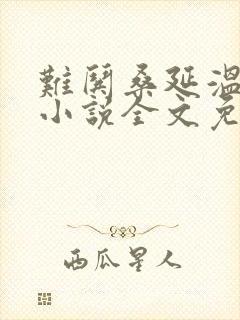 難鬨桑延溫
小說全文免
西瓜星人